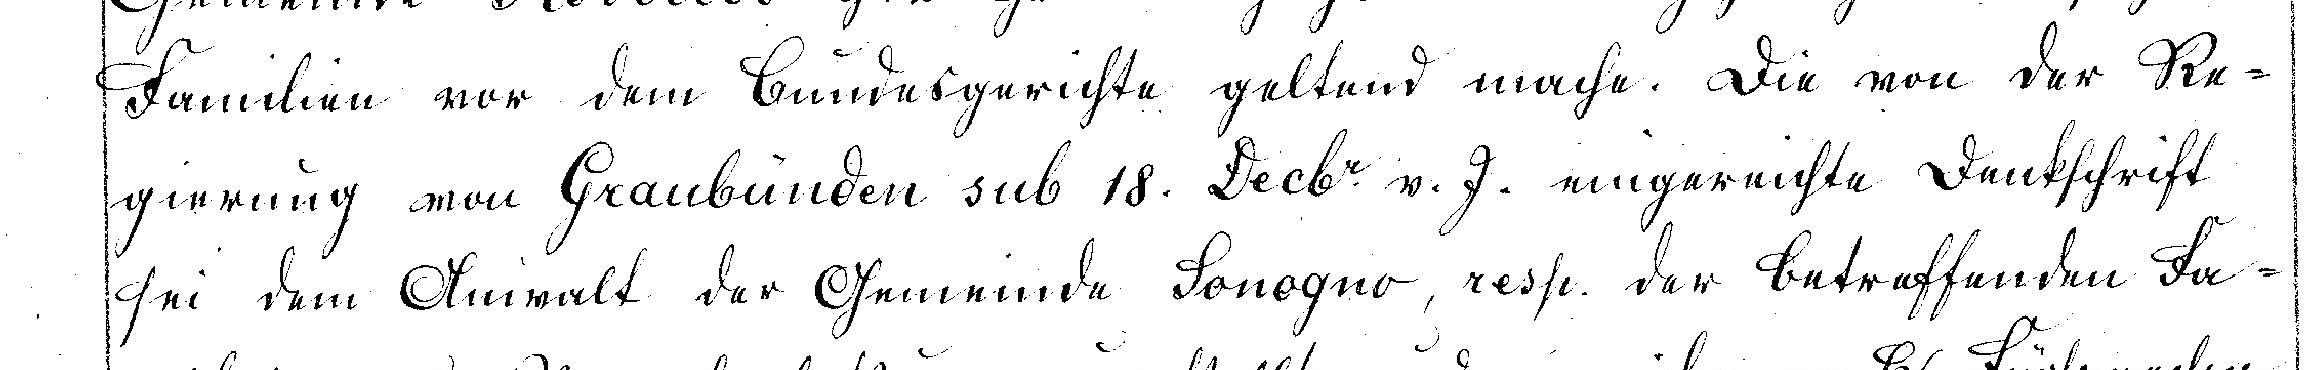 Familien vor dem Bundesgerichte geltend mache. Die von der Re=
gierung von Graubünden sub 18. Decbr. v. J. eingereichte Denkschrift
sei dem Anwalt der Gemeinde Sonogno, resp. der betreffenden Fa=